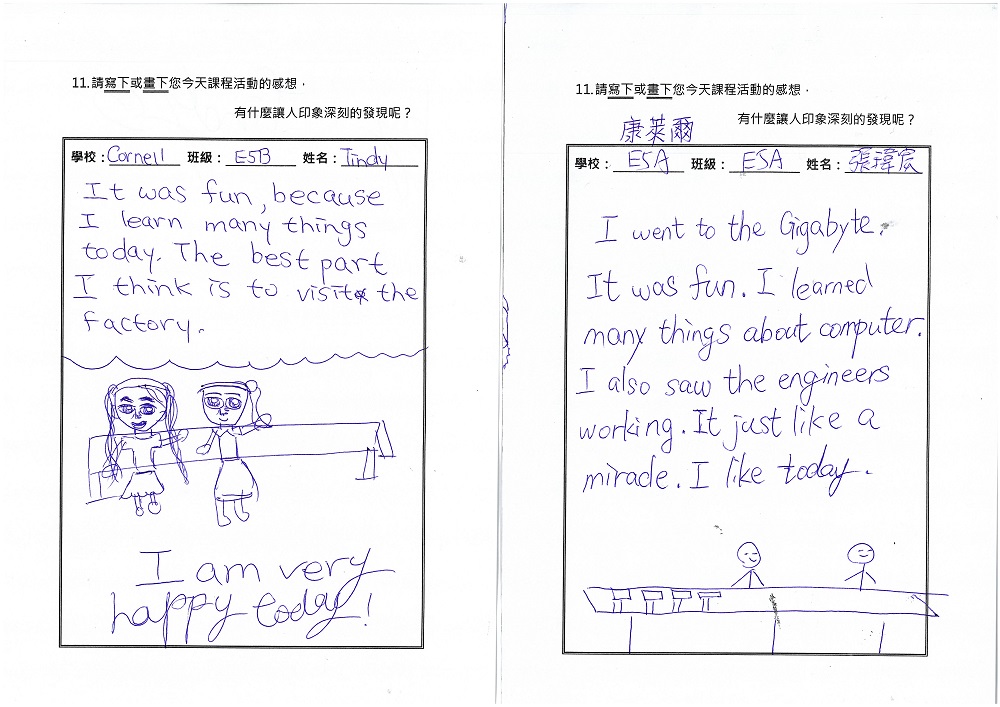 11.請寫下或畫下您今天課程活動的感想，
有什麼讓人印象深刻的發現呢？
學校：Cornell 班級：E5B 姓名：Tindy
It was fun, because
I learn many things
today. The best part
I think is to visit the
factory.
I am very
happy today!
11.請寫下或畫下您今天課程活動的感想，
有什麼讓人印象深刻的發現呢？
康萊爾
學校：E5A 班級：E5A 姓名：張瑋宸
I went to the Gigabyte.
It was fun. I learned
many things about computer.
I also saw the engineers
working. It just like a
miracle. I like today.